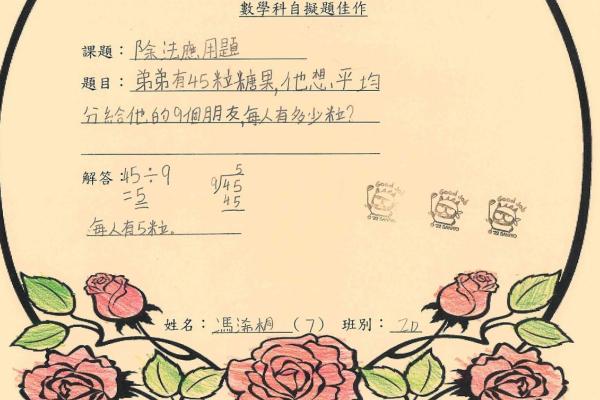 數學科自擬題佳作
課題：除法應用題
題目：弟弟有45粒糖果,他想平均
分給他的9個朋友,每人有多少粒?
解答：45÷9
=5
5
9)45
45
每人有5粒。
Good Job
Good Job
Good Job
姓名： （7） 班別：2D